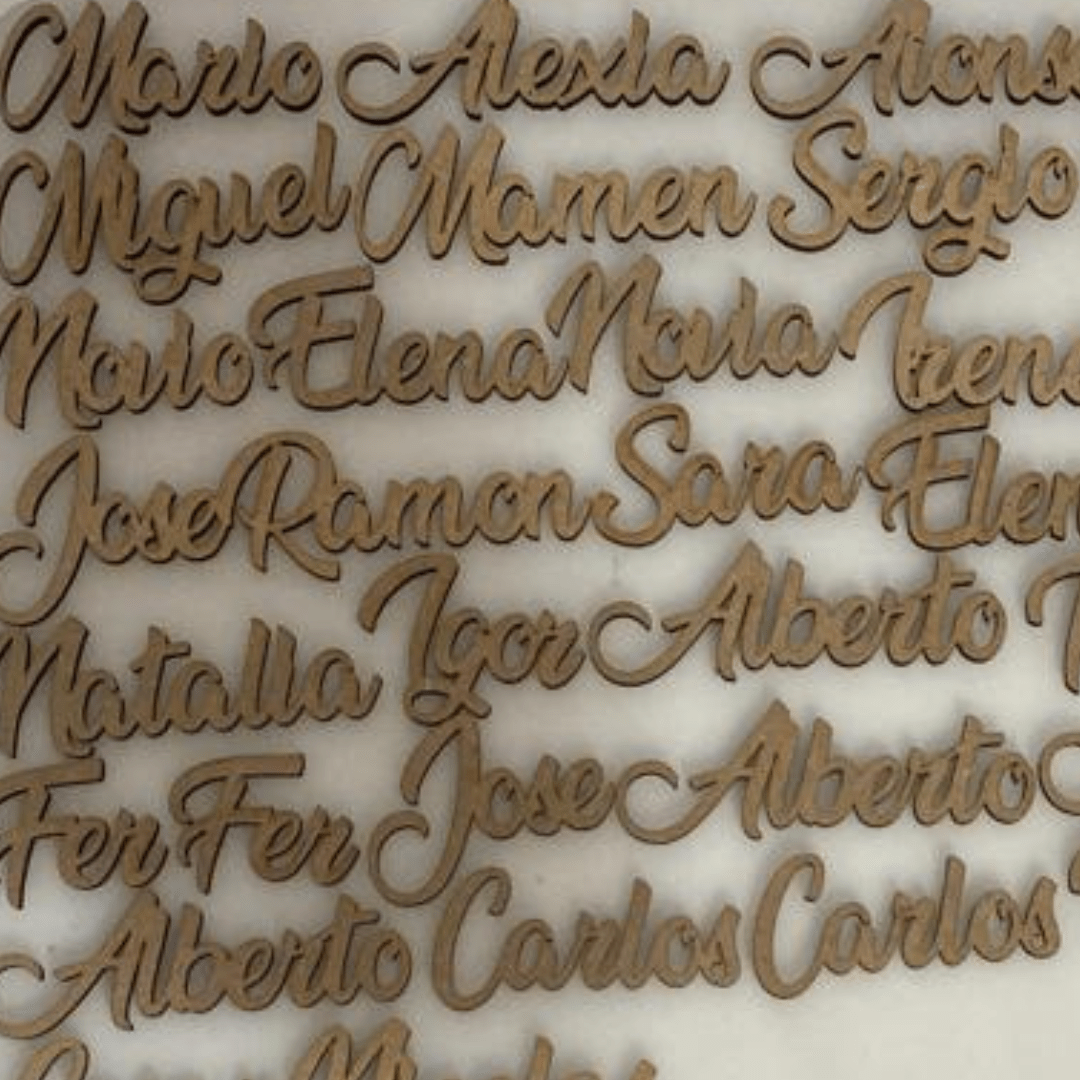 Mario Alexia Alons
Miguel Mamen Sergio
Novio Elena Novia Irene
Jose Ramon Sara Elen
Natalia Igor Alberto T
Fer Fer Jose Alberto
Alberto Carlos Carlos